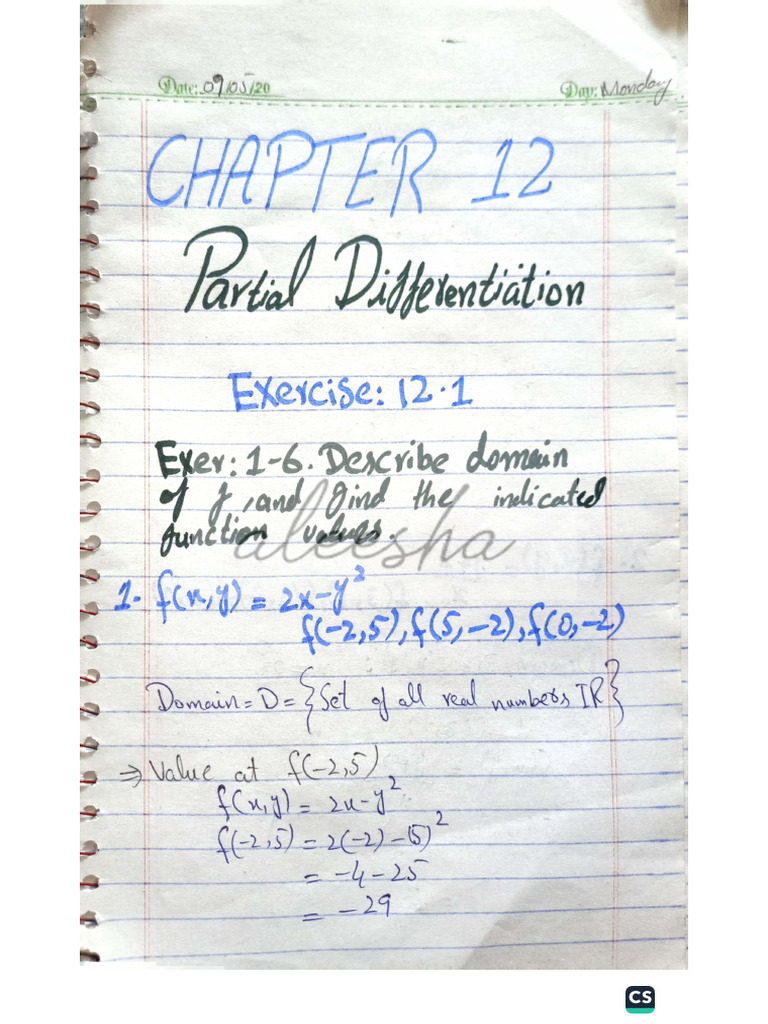 Date: 09/05/20 Day: Monday
CHAPTER 12
Partial Differentiation
Exercise: 12.1
Exer: 1-6. Describe domain
of f, and find the indicated
function values.
aleesha
1. f(x,y) = 2x-y²
f(-2,5), f(5,-2), f(0,-2)
Domain = D = {Set of all real numbers IR}
⇒ Value at f(-2,5)
f(x,y) = 2x-y²
f(-2,5) = 2(-2)-(5)²
= -4-25
= -29
CS